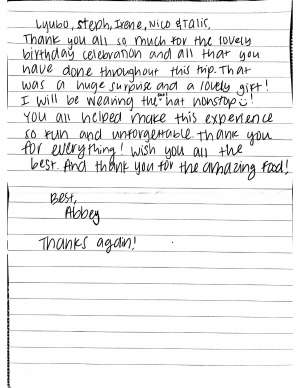 Lyubo, Steph, Irene, Nico & Talis,
Thank you all so much for the lovely
birthday celebration and all that you
have done throughout this trip. That
was a huge surprise and a lovely gift!
I will be wearing the hat nonstop!
You all helped make this experience
so fun and unforgettable. Thank you
for everything! Wish you all the
best. And thank you for the amazing food!
Best,
Abbey
Thanks again!